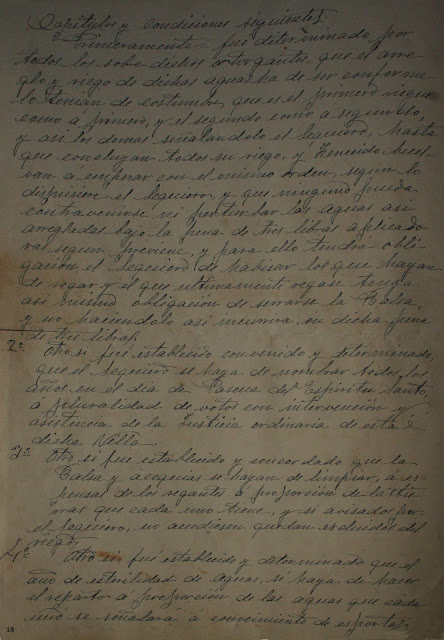 Capitulos y condiciones siguientes.
Primeramente = fué determinado por
todos los sobre dichos otorgantes, que el arre-
glo y riego de dichas aguas ha de ser conforme
lo tenian de costumbre, que es el primero riegue
como a primero, y el segundo como a segundo,
y asi los demas señalandolo el Sequiero, hasta
que concluyan todos su riego, y fenecido buel-
ban a empezar con el mismo orden, segun lo
dispusiere el Sequiero, y que ninguno pueda
contravenirse ni perturbar las aguas asi
arregladas bajo la pena de tres libras aplicado-
ras segun previene, y para ello tendrá obli-
gacion el Sequiero de habisar los que hayan
de regar y el que ultimamente regase tenga
asi mismo obligacion de serrarse la Balsa
y no haciendolo asi incurrira en dicha pena
de tres libras.
2ª Otro si fué establecido convenido y determinado,
que el Sequiero se haya de nombrar todos los
años en el dia de Pascua del Espiritu Santo,
a pluralidad de votos con intervención y
asistencia de la Justicia ordinaria de esta
dicha Valle.
3ª Otro si fue establecido y acordado que la
Balsa y acequias se hayan de limpiar, a es-
pensas de los regantes a proporcion de las tier-
ras que cada uno tiene, y si avisados por
el Sequiero, no acudiesen quedan escluidos del
riego.
4ª Otro si fué establecido y determinado que el
año de esterilidad de aguas, si haya de hacer
el reparto a proporcion de las aguas que cada
uno se señalará á conocimiento de espertos,
18